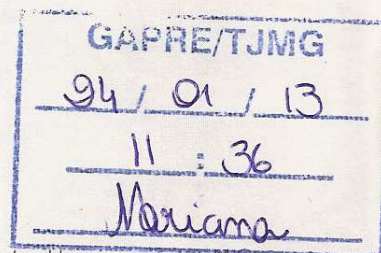 GAPRE/TJMG
24 / 01 / 13
11 : 36
Mariana